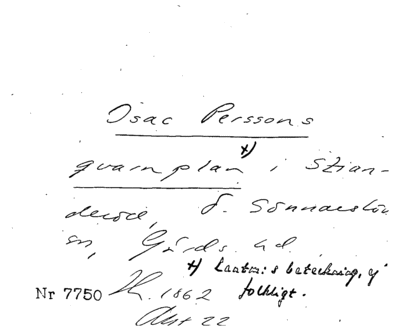 Isac Perssons
qvarnplan x) i Stian-
deröd, Ö. Sönnarslöv
sn, Gärds hd.
x) Lantm:s beteckning, ej
folkligt.
Nr 7750 1862
Akt 22